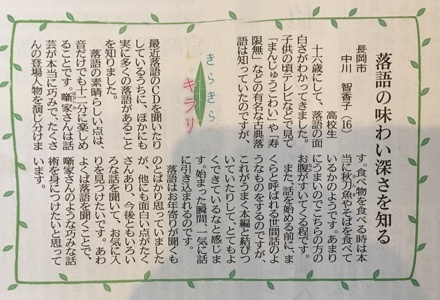 落語の味わい深さを知る
長岡市
高校生
中川 智香子(16)
十六歳にして、落語の面
白さがわかってきました。
子供の頃テレビなどで見て
「まんじゅうこわい」や「寿
限無」などの有名な古典落
語は知っていたのですが、
きらきら
キラリ
最近落語のCDを聞いたり
しているうちに、ほかにも
実に多くの落語があること
を知りました。
落語の素晴らしい点は、
音だけでも十二分に楽しめ
ることです。噺家さんは話
芸が本当に巧みで、たくさ
んの登場人物を演じ分けま
す。食べ物を食べる時は本
当に秋刀魚やそばを食べて
いるかのようです。あまり
にうまいのでこちらの方の
お腹がすいてくる程です。
また、話を始める前に、ま
くらと呼ばれる世間話のよ
うなものをするのですが、
これがうまく本編と結びつ
いていたりして、とてもよ
くできているなと感じま
す。始まった瞬間、一気に話
に引き込まれるのです。
落語はお年寄りが聞くも
のとばかり思っていました
が、他にも面白い点がたく
さんあり、今後ともいろい
ろな話を聞いて、お気に入
りを見つけたいです。あわ
よくば落語を聞くことで、
噺家さんのような巧みな話
術を身につけたいと思って
います。